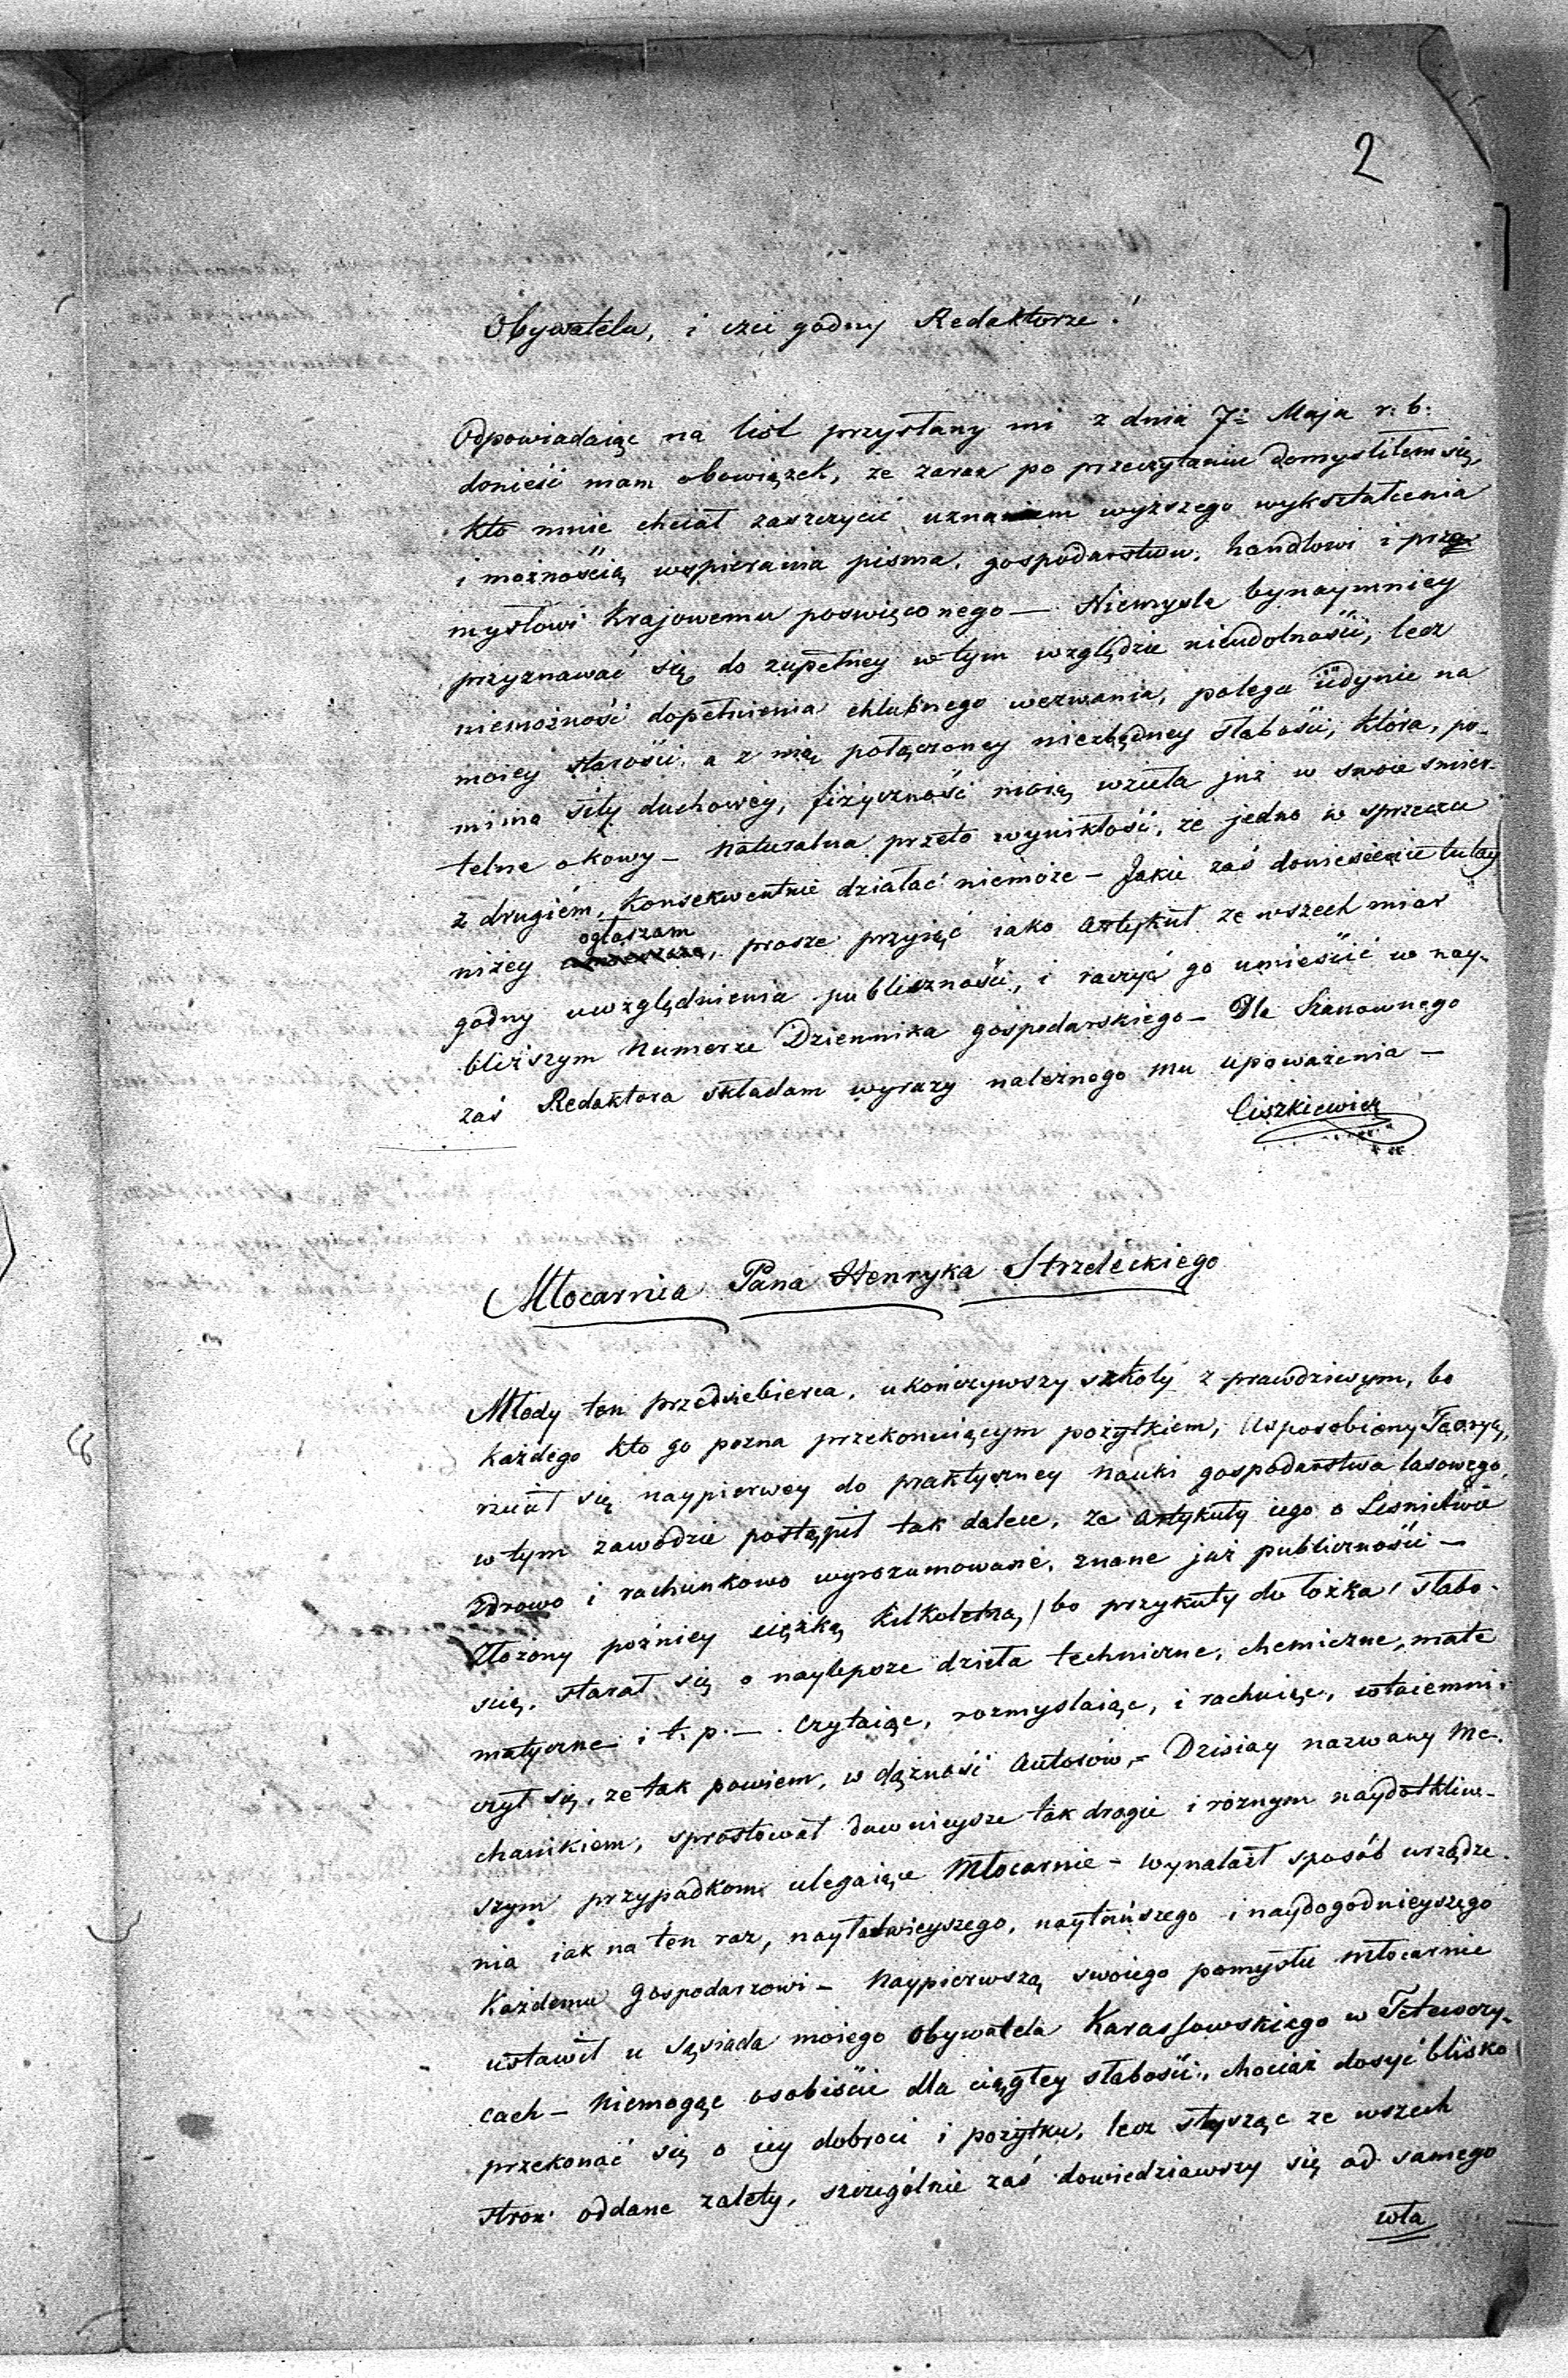 2
Obywatelu, i czci godny Redaktorze!
Odpowiadaiąc na list przysłany mi z dnia 7: Maja r: b:
donieść mam obowiązek, że zaraz po przeczytaniu domysliłem się,
kto mnie chciał zaszczycić uznaniem wyższego wykształcenia
i możnością wspierania pisma, gospodarstwu, handlowi i prze
mysłowi Krajowemu poswięconego — Niemysle bynaymniey
przyznawać się do zupełney w tym względzie nieudolności, lecz
niemożność dopełnienia chlubnego wezwania, polega iedynie na
moiey starości, a z nią połączoney niezbędney słabości, która, po-
mimo siły duchowey, fizyczność moią wzieła już w swoie smier-
telne okowy — Naturalna przeto wynikłość, że jedno w sprzeczce
z drugiém, konsekwentnie działać niemoże — Jakie zaś doniesienie tutay
niżey ogłaszam, prosze przyiąć iako Artykuł ze wszech miar
godny uwzględnienia publiczności, i raczyć go umieścić w nay-
bliższym Numerze Dziennika gospodarskiego — Dla Szanownego
zaś Redaktora składam wyrazy należnego mu upoważenia —
Ciszkiewicz
Młocarnia Pana Henryka Strzeleckiego
Młody ten przedsiebierca, ukończywszy szkoły z prawdziwym, bo
każdego kto go pozna przekonuiącym pożytkiem, usposobiony Teoryą,
rzucił się naypierwey do praktyczney nauki gospodarstwa lasowego,
w tym zawodzie postąpił tak dalece, że Artykuły iego o Lesnictwie
zdrowo i rachunkowo wyrozumowane, znane już publiczności —
Złożony poźniey ciężką kilkoletną / bo przykuty do łożka / słabo-
scią, starał się o naylepsze dzieła techniczne, chemiczne, mate
matyczne i t. p. — Czytaiąc, rozmyslaiąc, i rachuiąc, wtaiemni-
czył się, że tak powiem, w dążność Autorów, — Dzisiay nazwany Me-
chanikiem, sprostował dawnieysze tak drogie i roznym naydotkliw-
szym przypadkom ulegaiące Młocarnie — wynalazł sposób urządze-
nia iak na ten raz, nayłatwieyszego, naytańszego i naydogodnieyszego
Każdemu Gospodarzowi — Naypierwszą swoiego pomysłu młocarnie
ustawił u sąsiada moiego Obywatela Karassowskiego w Tetewczy-
cach — Niemogąc osobiście dla ciągłey słabości, chociaż dosyć blisko
przekonać się o iey dobroci i pożytku, lecz słysząc ze wszech
stron oddane zalety, szczególnie zaś dowiedziawszy się od samego
wła